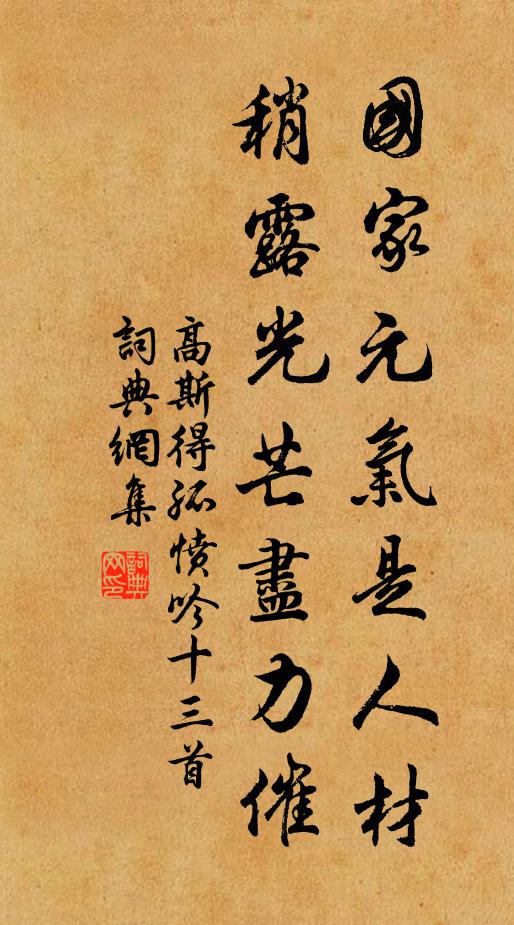 國家元氣是人材
稍露光芒盡力催
高斯得孤憤吟十三首
詞典網集
詞典網印